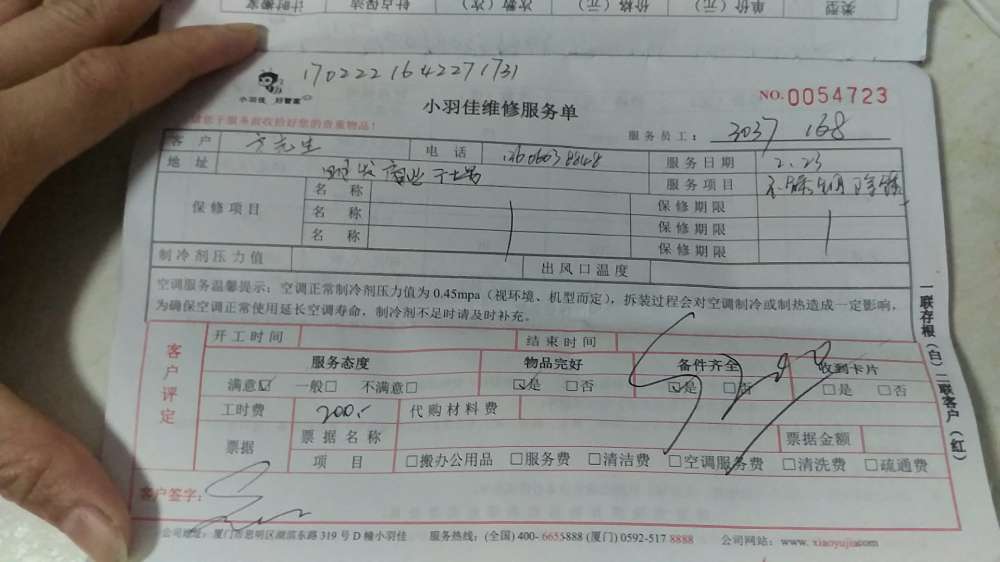 类型 单价（元） 价格（元） 次数（次） 针点保洁 计时搬家
1702221642271731
小羽佳 好管家
小羽佳维修服务单
NO.0054723
服务员工：3037 168
客户 方先生 电话 服务日期 2.23
地址 服务项目
保修项目 名称 保修期限
名称 保修期限
名称 保修期限
制冷剂压力值 出风口温度
空调服务温馨提示：空调正常制冷剂压力值为0.45mpa（视环境、机型而定），拆装过程会对空调制冷或制热造成一定影响，
为确保空调正常使用延长空调寿命，制冷剂不足时请及时补充。
客户评定
开工时间 结束时间
服务态度 物品完好 备件齐全 收到卡片
满意☑ 一般□ 不满意□ ☑是 □否 ☑是 □否 □是 □否
工时费 200.- 代购材料费
票据 票据名称 票据金额
项目 □搬办公用品 □服务费 □清洁费 □空调服务费 □清洗费 □疏通费
客户签字：
公司地址：厦门市思明区湖滨东路319号D幢小羽佳 服务热线：(全国) 400-6655888 (厦门) 0592-517 8888 公司网站：www. xiaoyujia.com
一联存根（白）二联客户（红）